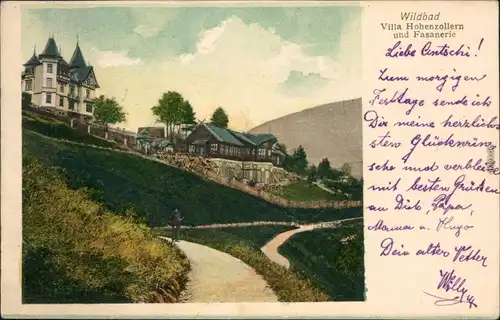 Wildbad
Villa Hohenzollern
und Fasanerie
Liebe Antschi!
Zum morgigen
Festtage sende ich
Dir meine herzlich-
sten Glückwün-
sche und verbleibe
mit besten Grüßen
an Dich, Papa,
Mama u. Hugo
Dein alter Vetter
Willy